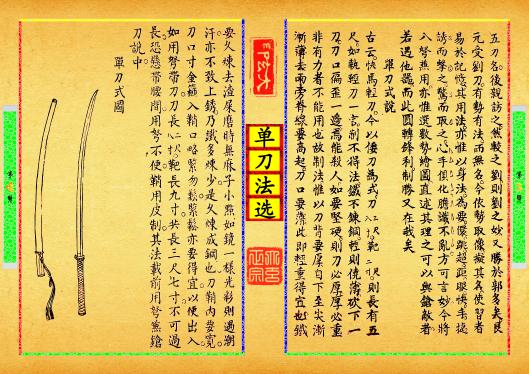 五刀名後親訪之然較之劉則劉之妙又勝於郭多矣
元受劉刀有勢有法而無名今依勢取像擬其名使習者
易於記憶其用法亦惟以身法為要儇跳超距眼快手捷
誘而擊之驚而取之心手俱化膽識不亂方可言妙今將
八弩燕用亦惟選數勢繪圖直述其理之可以與鎗敵者
若遇他器而此圓轉鋒利制勝又在我矣
單刀式說
古云快馬輕刀今以倭刀為式刀 則長有五
尺如執輕刀一言則不得法鐵不鍊鋼輕則僥薄砍下一
刀刀口偏歪一邊焉能殺人如要堅硬則刀必厚厚必重
非有力者不能用也故制法惟以刀背要厚自下至尖漸
漸薄去兩旁脊線要高起刀口要薄此即輕重得宜也鐵
单刀法选
要久煉去渣屎磨時無麻子小點如鏡一樣光彩則過潮
汗亦不致上銹乃鐵多煉少是久煉成鋼也刀鞘內要寬
刀口寸金箍入鞘口略緊勿鬆緊鬆亦要得宜以便出入
如用弩帶刀刀長 靶長九寸共長三尺七寸不可過
長恐懸帶腰間用弩不便鞘用皮制其法載前用弩無鎗
刀說中
單刀式圖